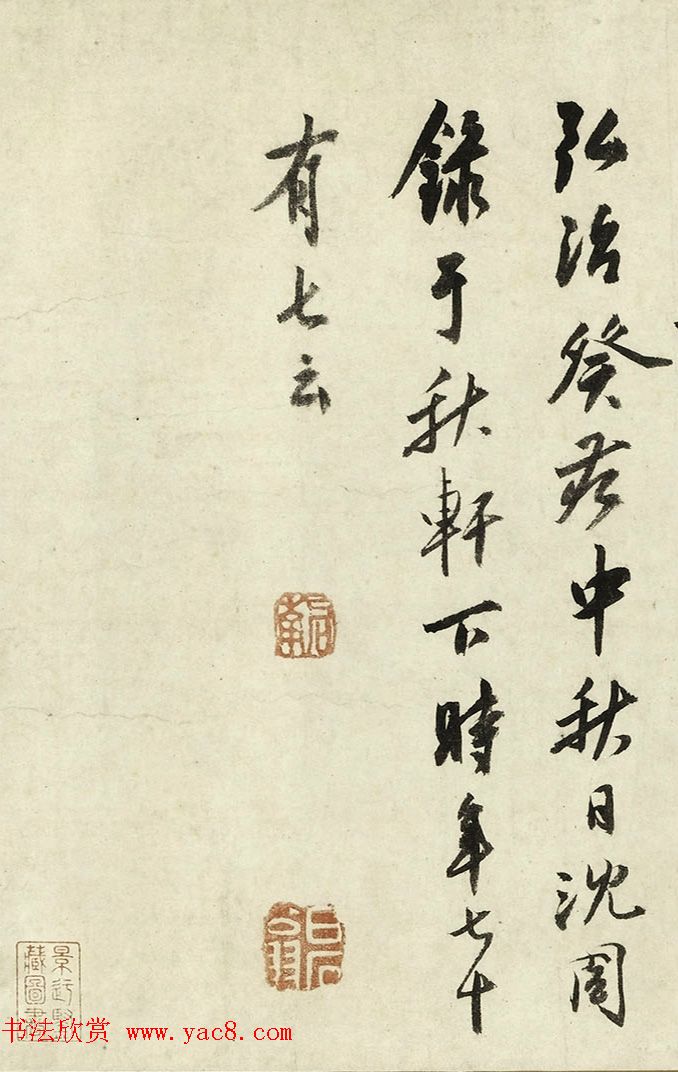 弘治癸亥中秋日沈周
錄于秋軒下時年七十
有七云
啟南
书法欣赏 www.yac8.com